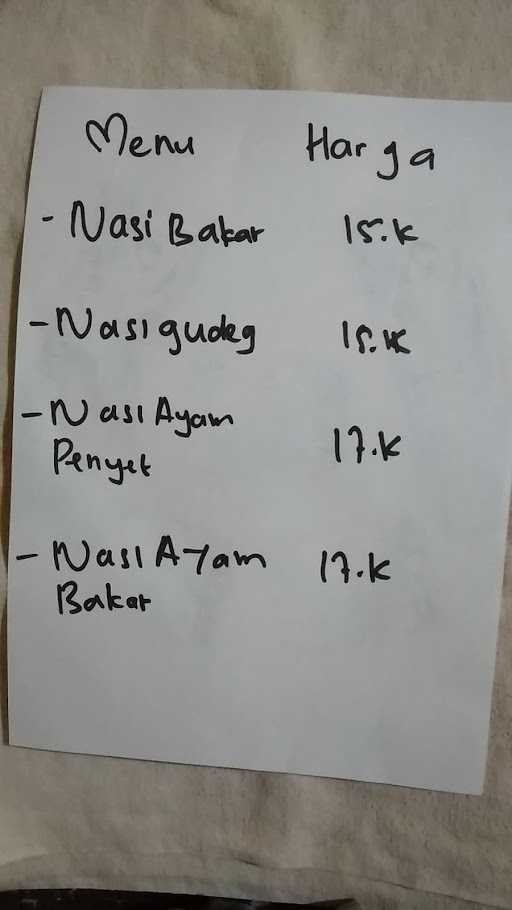 Menu Harga
- Nasi Bakar 15.K
- Nasi gudeg 15.K
- Nasi Ayam
Penyet 17.K
- Nasi Ayam 17.K
Bakar